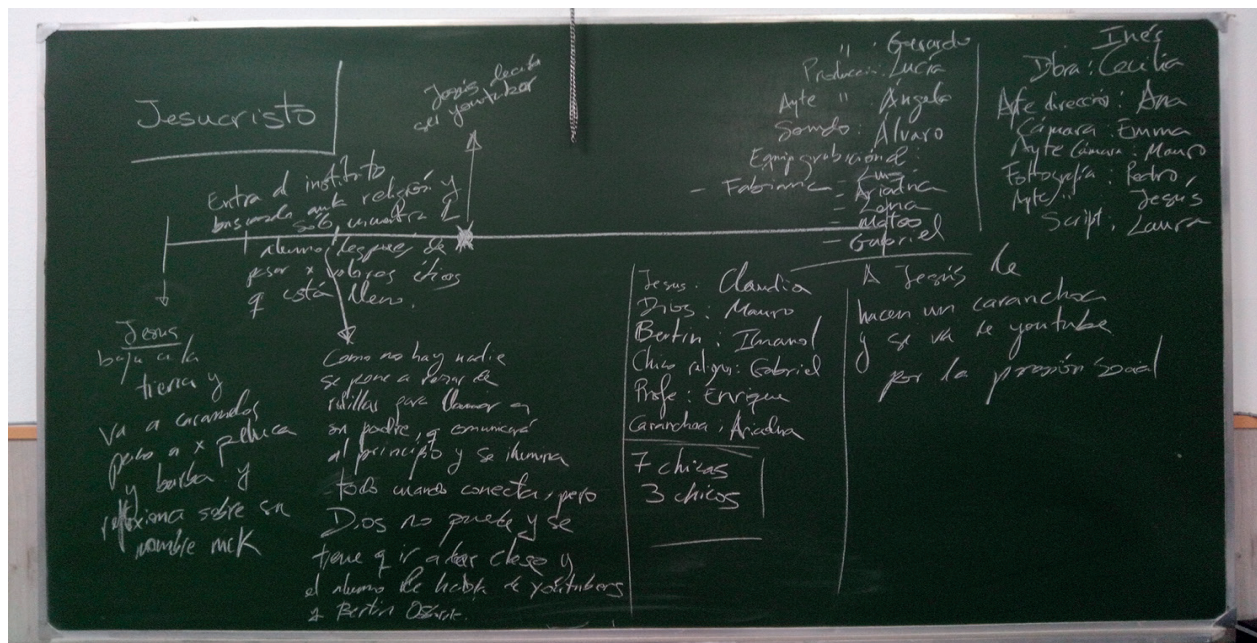 Jesucristo
Jesús decide
ser youtuber
Entra al instituto
buscando aula religión y
solo encuentra 1
alumno después de
pasar x valores éticos
q está lleno.
Jesus
baja a la
tierra y
va a caramelos
paco a x peluca
y barba y
reflexiona sobre su
nombre mck
Como no hay nadie
se pone a rezar de
rodillas para llamar a
su padre, q comunicará
al principio y se ilumina
todo cuando conecta, pero
Dios no puede y se
tiene q ir a clase y
el alumno le habla de youtubers
y Bertin
" : Gerardo
Producción: Lucía
Ayte " : Ángela
Sonido: Álvaro
Equipo
- Fabianna
- Ariadna
- Mateo
- Gabriel
Inés
Dbra: Cecilia
Ayte dirección: Ana
Cámara: Emma
Ayte Cámara: Mauro
Fottografía: Pedro
Ayte " Jesús
Script: Laura
Jesus: Claudia
Dios: Mauro
Bertin: Imanol
Chico religión: Gabriel
Profe: Enrique
Caranchoa: Ariadna
7 chicas
3 chicos
A Jesús le
hacen un caranchoa
y se va de youtube
por la presión social